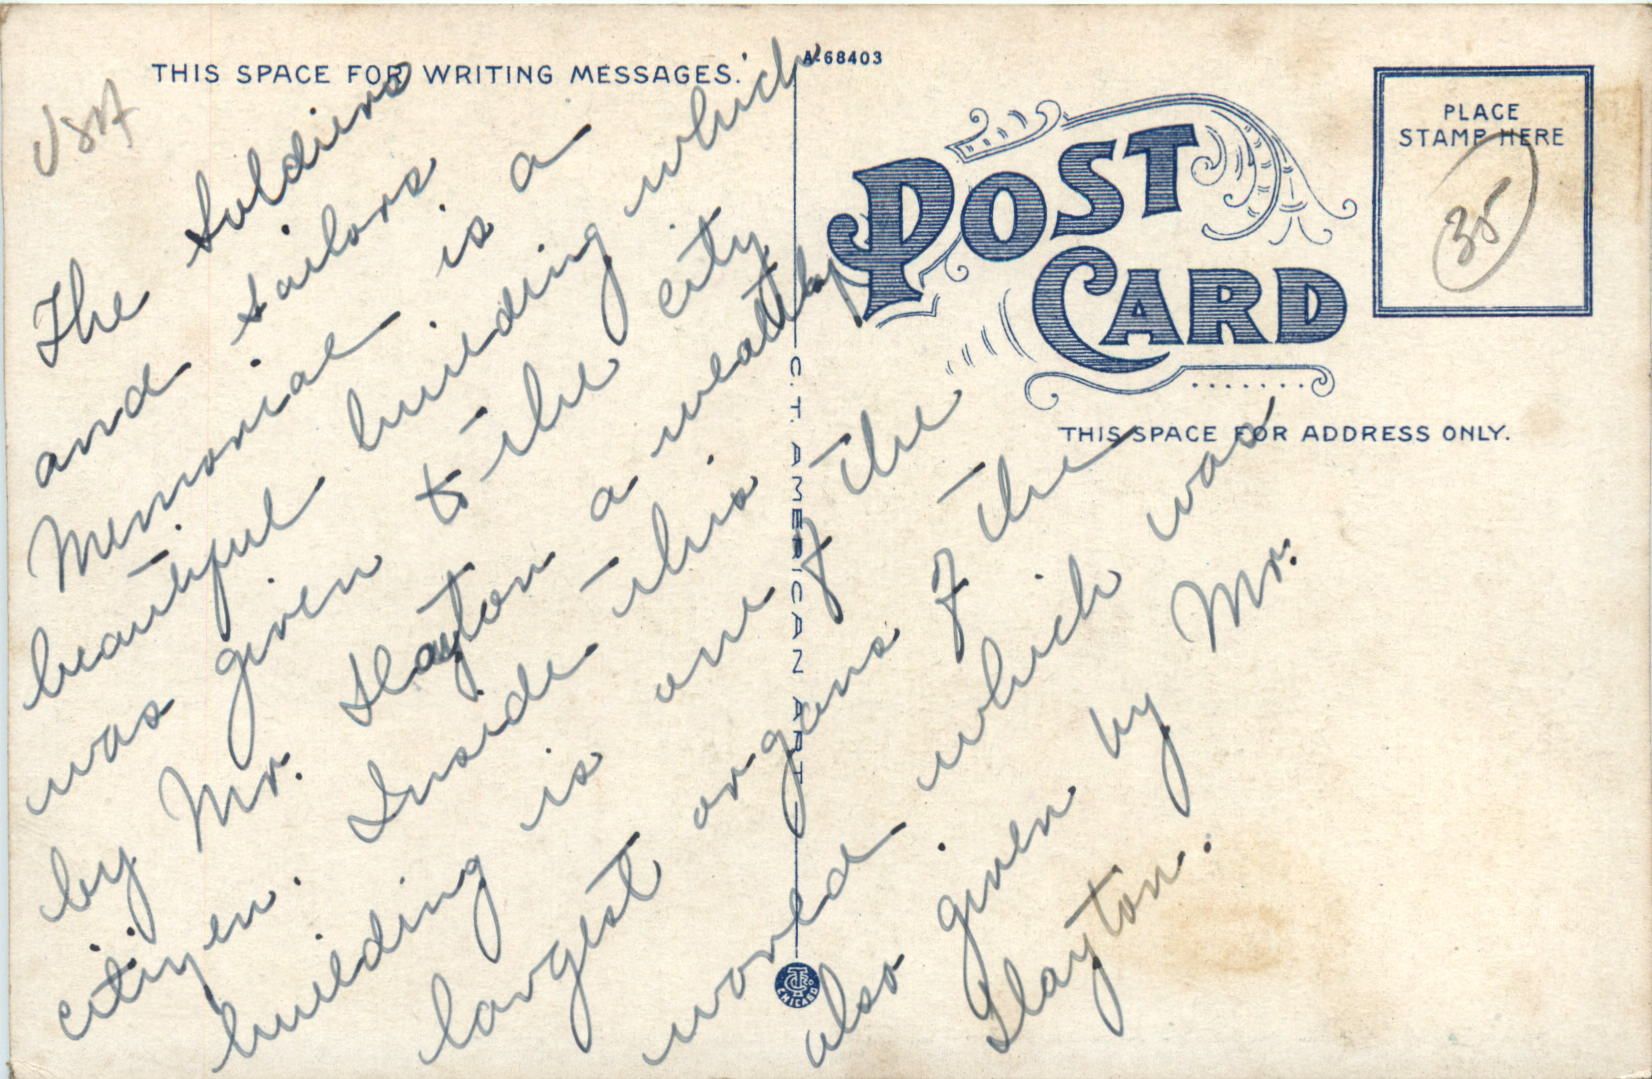 THIS SPACE FOR WRITING MESSAGES.
A-68403
USA
The Soldiers
and Sailors
Memorial is a
beautiful building which
was given to the city
by Mr. Slayton a wealthy
citizen. Inside this
building is one of the
largest organs of the
world which was
also given by Mr.
Slayton.
POST
CARD
PLACE
STAMP HERE
35
THIS SPACE FOR ADDRESS ONLY.
C. T. AMERICAN ART
CHICAGO